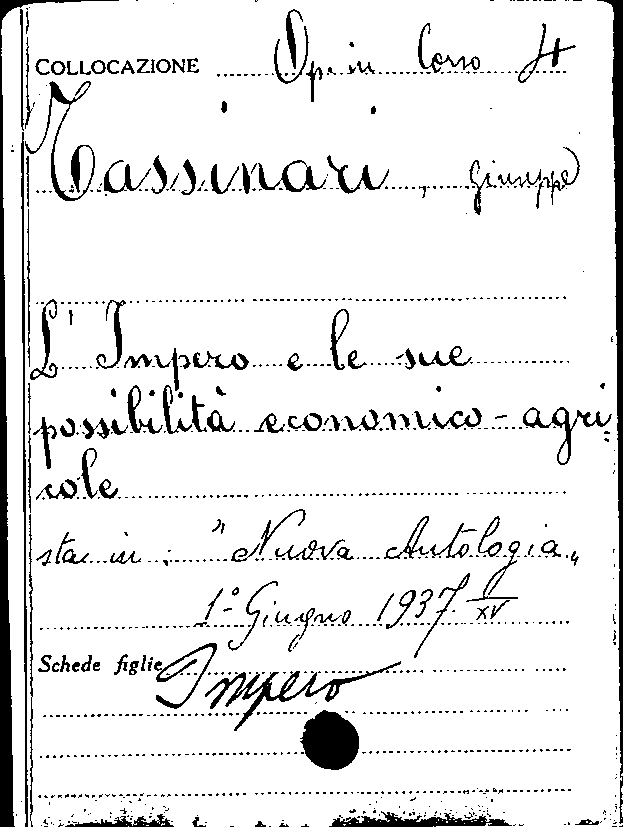 COLLOCAZIONE Op. in Corso 4
Tassinari, Giuseppe
L'Impero e le sue
possibilità economico-agri=
cole
sta in: "Nuova Antologia„
1° Giugno 1937. XV
Schede figlie
Impero